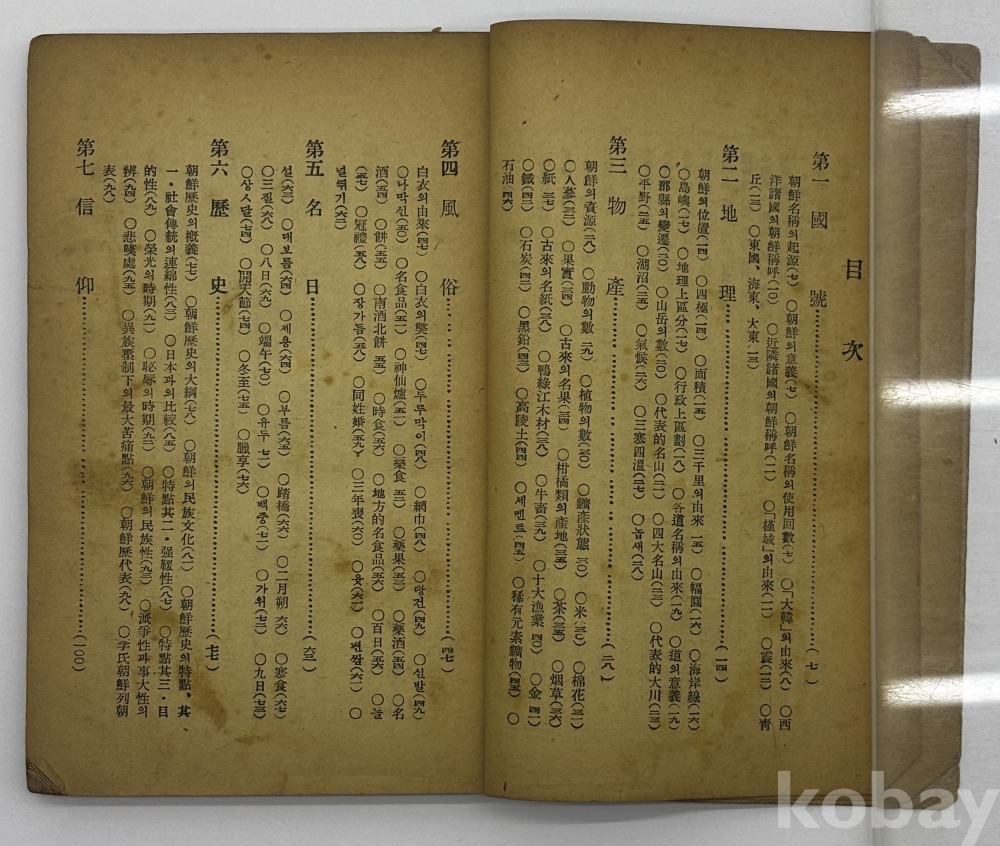 目次
第一 國號……(七)
朝鮮名稱의起源(七) ○朝鮮의意義(七) ○朝鮮名稱의使用回數(七) ○「大韓」의由來(八) ○西
洋諸國의朝鮮稱呼(一〇) ○近隣諸國의朝鮮稱呼(一一) ○「槿域」의由來(一一) ○震(一二) ○靑
丘(一三) ○東國、海東、大東(一三)
第二 地理……(一四)
朝鮮의位置(一四) ○四極(一四) ○面積(一五) ○三千里의由來(一五) ○幅圓(一六) ○海岸線(一六)
○島嶼(一七) ○地理上區分(一七) ○行政上區劃(一八) ○各道名稱의由來(一九) ○道의意義(一九)
○郡縣의變遷(二〇) ○山岳의數(二〇) ○代表的名山(二一) ○四大名山(二三) ○代表的大川(二三)
○平野(二五) ○湖沼(二五) ○氣候(二六) ○三寒四溫(二七) ○놉새(二八)
第三 物產……(二八)
朝鮮의資源(二八) ○動物의數(二九) ○植物의數(三〇) ○鑛產狀態(三〇) ○米(三〇) ○棉花(三一)
○人蔘(三二) ○果實(三四) ○古來의名果(三四) ○柑橘類의產地(三五) ○茶(三五) ○烟草(三六)
○紙(三七) ○古來의名紙(三八) ○鴨綠江木材(三八) ○牛畜(三九) ○十大漁業(四〇) ○金(四一)
○鐵(四二) ○石炭(四二) ○黑鉛(四三) ○高陵土(四四) ○세멘트(四五) ○稀有元素鑛物(四五) ○
石油(四六)
第四 風俗……(四七)
白衣의由來(四七) ○白衣의獎(四七) ○두루막이(四八) ○網巾(四八) ○탕건(四九) ○신발(四九)
○나막신(五〇) ○名食品(五一) ○神仙爐(五一) ○藥食(五二) ○藥果(五三) ○藥酒(五四) ○名
酒(五四) ○餠(五五) ○南酒北餠(五五) ○時食(五六) ○地方的名食品(五六) ○百日(五六) ○돌
(五七) ○冠禮(五八) ○장가듦(五八) ○同姓婚(五九) ○三年喪(六〇) ○윷(六一) ○편쌈(六一) ○
널뛰기(六二)
第五 名日……(六三)
설(六三) ○대보름(六四) ○제용(六四) ○부름(六五) ○踏橋(六六) ○二月朔(六六) ○寒食(六七)
○三질(六八) ○八日(六九) ○端午(七〇) ○유두(七一) ○백중(七二) ○가위(七三) ○九日(七三)
○상ㅅ달(七四) ○開天節(七四) ○冬至(七五) ○臘享(七六)
第六 歷史……(七七)
朝鮮歷史의槪義(七七) ○朝鮮歷史의大綱(七八) ○朝鮮의民族文化(八一) ○朝鮮歷史의特點、其
一・社會傳統의連綿性(八三) ○日本과의比較(八五) ○特點其二・强靱性(八七) ○特點其三・目
的性(八九) ○榮光의時期(九一) ○恥辱의時期(九二) ○朝鮮의民族性(九三) ○派爭性과事大性의
辨(九四) ○悲嘆處(九五) ○異族壓制下의最大苦痛點(九六) ○朝鮮歷代表(九八) ○李氏朝鮮列朝
表(九八)
第七 信仰……(一〇〇)
kobay